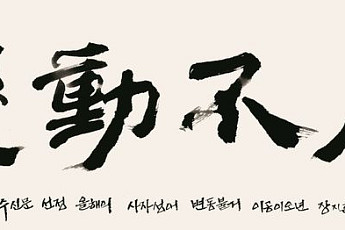 動不
수신문 선정 올해의 사자성어 변동불거 이동이소년